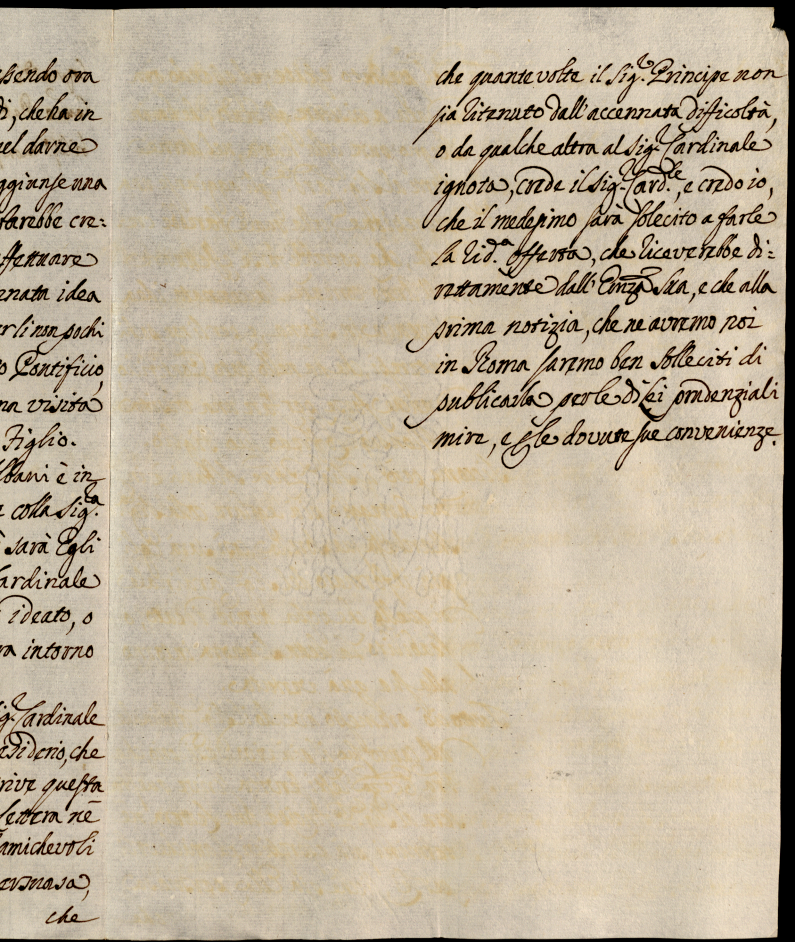 ssendo ora
dì, che ha in
uel darne
ggiunse una
sarebbe cre:
ffettuare
nnata idea
er li non pochi
o Pontificio,
na visita
Figlio.
lbani è in
colla Sig.ra
sarà Egli
ardinale
ideato, o
ra intorno
ig.r Cardinale
esiderio, che
rive questa
lettera nè
amichevoli
che
che quante volte il Sig.r Principe non
sia ritenuto dall'accennata difficoltà,
o da qualche altra al Sig.r Cardinale
ignota, crede il Sig.r Card.le, e credo io,
che il medesimo sarà solecito a farle
la rid.a offerta, che riceverebbe di:
rettamente dall'Emza Sua, e che alla
prima notizia, che ne avremo noi
in Roma saremo ben solleciti di
publicarla per le di lei prudenziali
mire, e p le dovute sue convenienze.